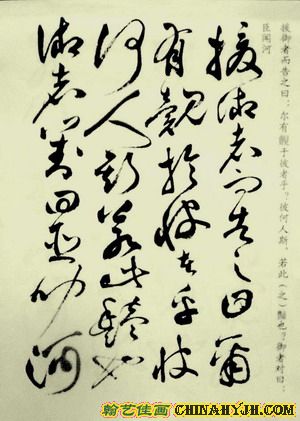 援御者而告之曰：尔有覿于彼者乎？彼何人斯，若此（之）豔也？御者对曰：
臣闻河
援御者而告之曰爾
有覿於彼者乎彼
何人斯若此豔也
御者對曰臣聞河
翰艺佳画
CHINAHYJH.COM